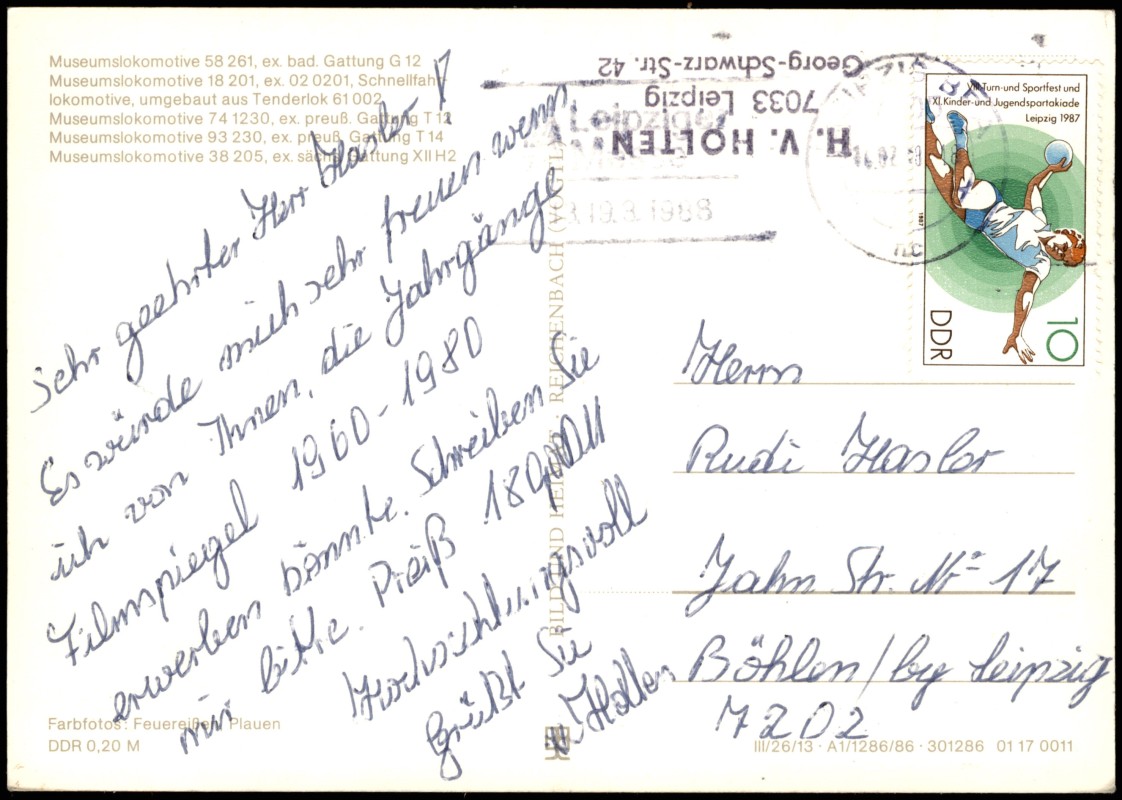 Museumslokomotive 58 261, ex. bad. Gattung G 12
Museumslokomotive 18 201, ex. 02 0201, Schnellfahr-
lokomotive, umgebaut aus Tenderlok 61 002
Museumslokomotive 74 1230, ex. preuß. Gattung T 12
Museumslokomotive 93 230, ex. preuß. Gattung T 14
Museumslokomotive 38 205, ex. sächs. Gattung XII H2
Sehr geehrter Herr Hasler!
Es würde mich sehr freuen wenn
ich von Ihnen, die Jahrgänge
Filmspiegel 1960-1980
erwerben könnte. Schreiben Sie
mir bitte. Preiß 180,00M
Hochachtungsvoll
Grüßt Sie
v. Holten
Farbfotos: Feuereißen, Plauen
DDR 0,20 M
BILD UND HEIMAT · REICHENBACH (VOGTL
H. V. HOLTEN
7033 Leipzig
Georg-Schwarz-Str. 42
Leipziger
19.3.1988
VIII. Turn- und Sportfest und
XI. Kinder- und Jugendspartakiade
Leipzig 1987
1987
DDR
10
Herrn
Rudi Hasler
Jahn Str. Nr 17
Böhlen/bg Leipzig
7202
III/26/13 · A1/1286/86 · 301286 01 17 0011